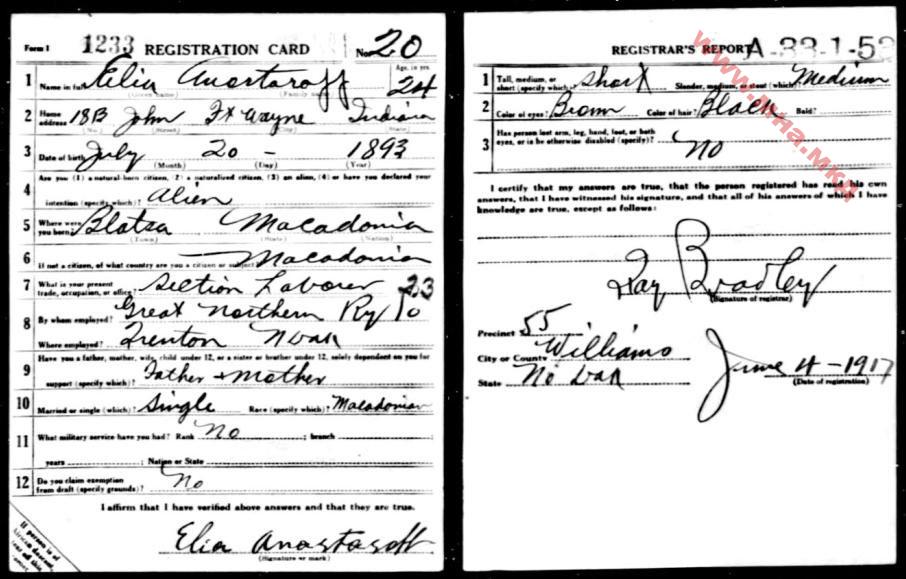 Form 1 1233 REGISTRATION CARD No. 20
1 Name in full Elia Anastasoff Age, in yrs. 24
(Given name) (Family name)
2 Home address 1813 John Ft Wayne Indiana
(No.) (Street) (City) (State)
3 Date of birth July 20 - 1893
(Month) (Day) (Year)
4 Are you (1) a natural-born citizen, (2) a naturalized citizen, (3) an alien, (4) or have you declared your
intention (specify which)? Alien
5 Where were you born? Blatsa Macadonia
(Town) (State) (Nation)
6 If not a citizen, of what country are you a citizen or subject? Macadonian
7 What is your present trade, occupation, or office? Section Laborer 23
8 By whom employed? Great Northern Ry Co
Where employed? Trenton N Dak
9 Have you a father, mother, wife, child under 12, or a sister or brother under 12, solely dependent on you for
support (specify which)? Father + Mother
10 Married or single (which)? Single Race (specify which)? Macadonian
11 What military service have you had? Rank No ; branch
years ; Nation or State
12 Do you claim exemption from draft (specify grounds)? No
I affirm that I have verified above answers and that they are true.
Elia Anastasoff
(Signature or mark)
If person is of
African descent,
REGISTRAR'S REPORT A-33-1-53
1 Tall, medium, or short (specify which)? Short Slender, medium, or stout (which)? Medium
2 Color of eyes? Brown Color of hair? Black Bald?
3 Has person lost arm, leg, hand, foot, or both
eyes, or is he otherwise disabled (specify)? No
I certify that my answers are true, that the person registered has read his own
answers, that I have witnessed his signature, and that all of his answers of which I have
knowledge are true, except as follows:
Ray Bradley
(Signature of registrar)
Precinct 55
City or County Williams
State No Dak
June 4 - 1917
(Date of registration)